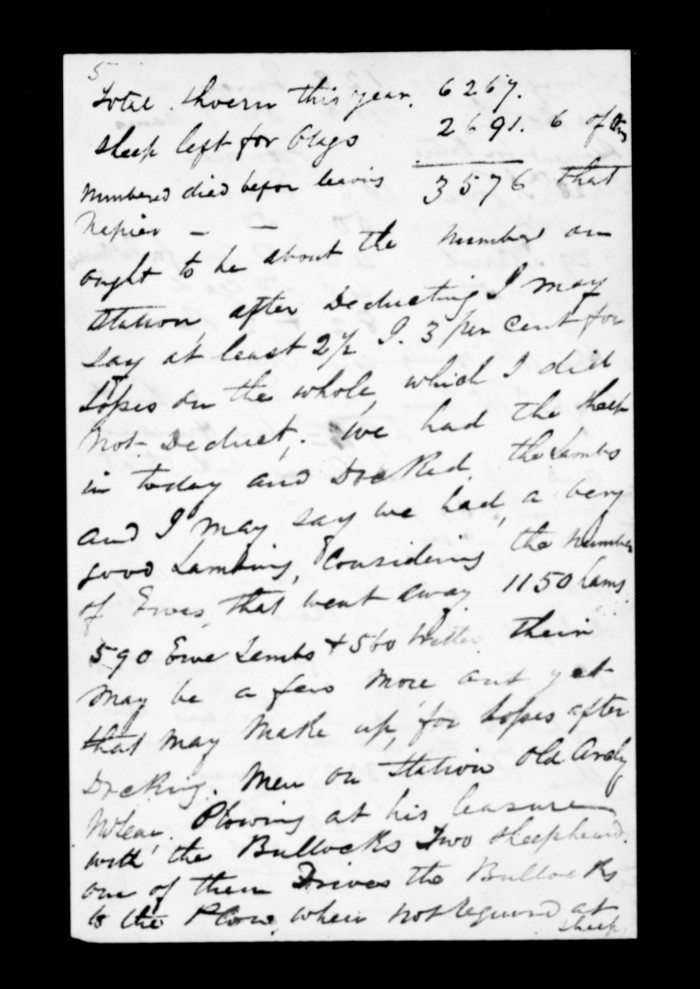 5
Total Shorn this year. 6267.
Sheep left for Otago 2691. 6 of the
Numbered died befor leaving 3576 that
Napier — —
ought to be about the Number on
Station, after Deducting I may
say at least 2½ I. 3 per cent for
Losses on the whole, which I did
Not Deduct. We had the Sheep
in today and Docked the Lambs
and I may say we had, a very
good Lambing, Considering the Number
of Ewes, that went away 1150 Lams
590 Ewe Lambs & 560 Wether their
may be a few more out yet
that may make up, for Losses after
Docking. Men on Station Old Andy
Plowing at his leasure
with the Bullocks Two Sheepherd.
one of them Drives the Bullocks
to the Plow, when not required at
sheep.